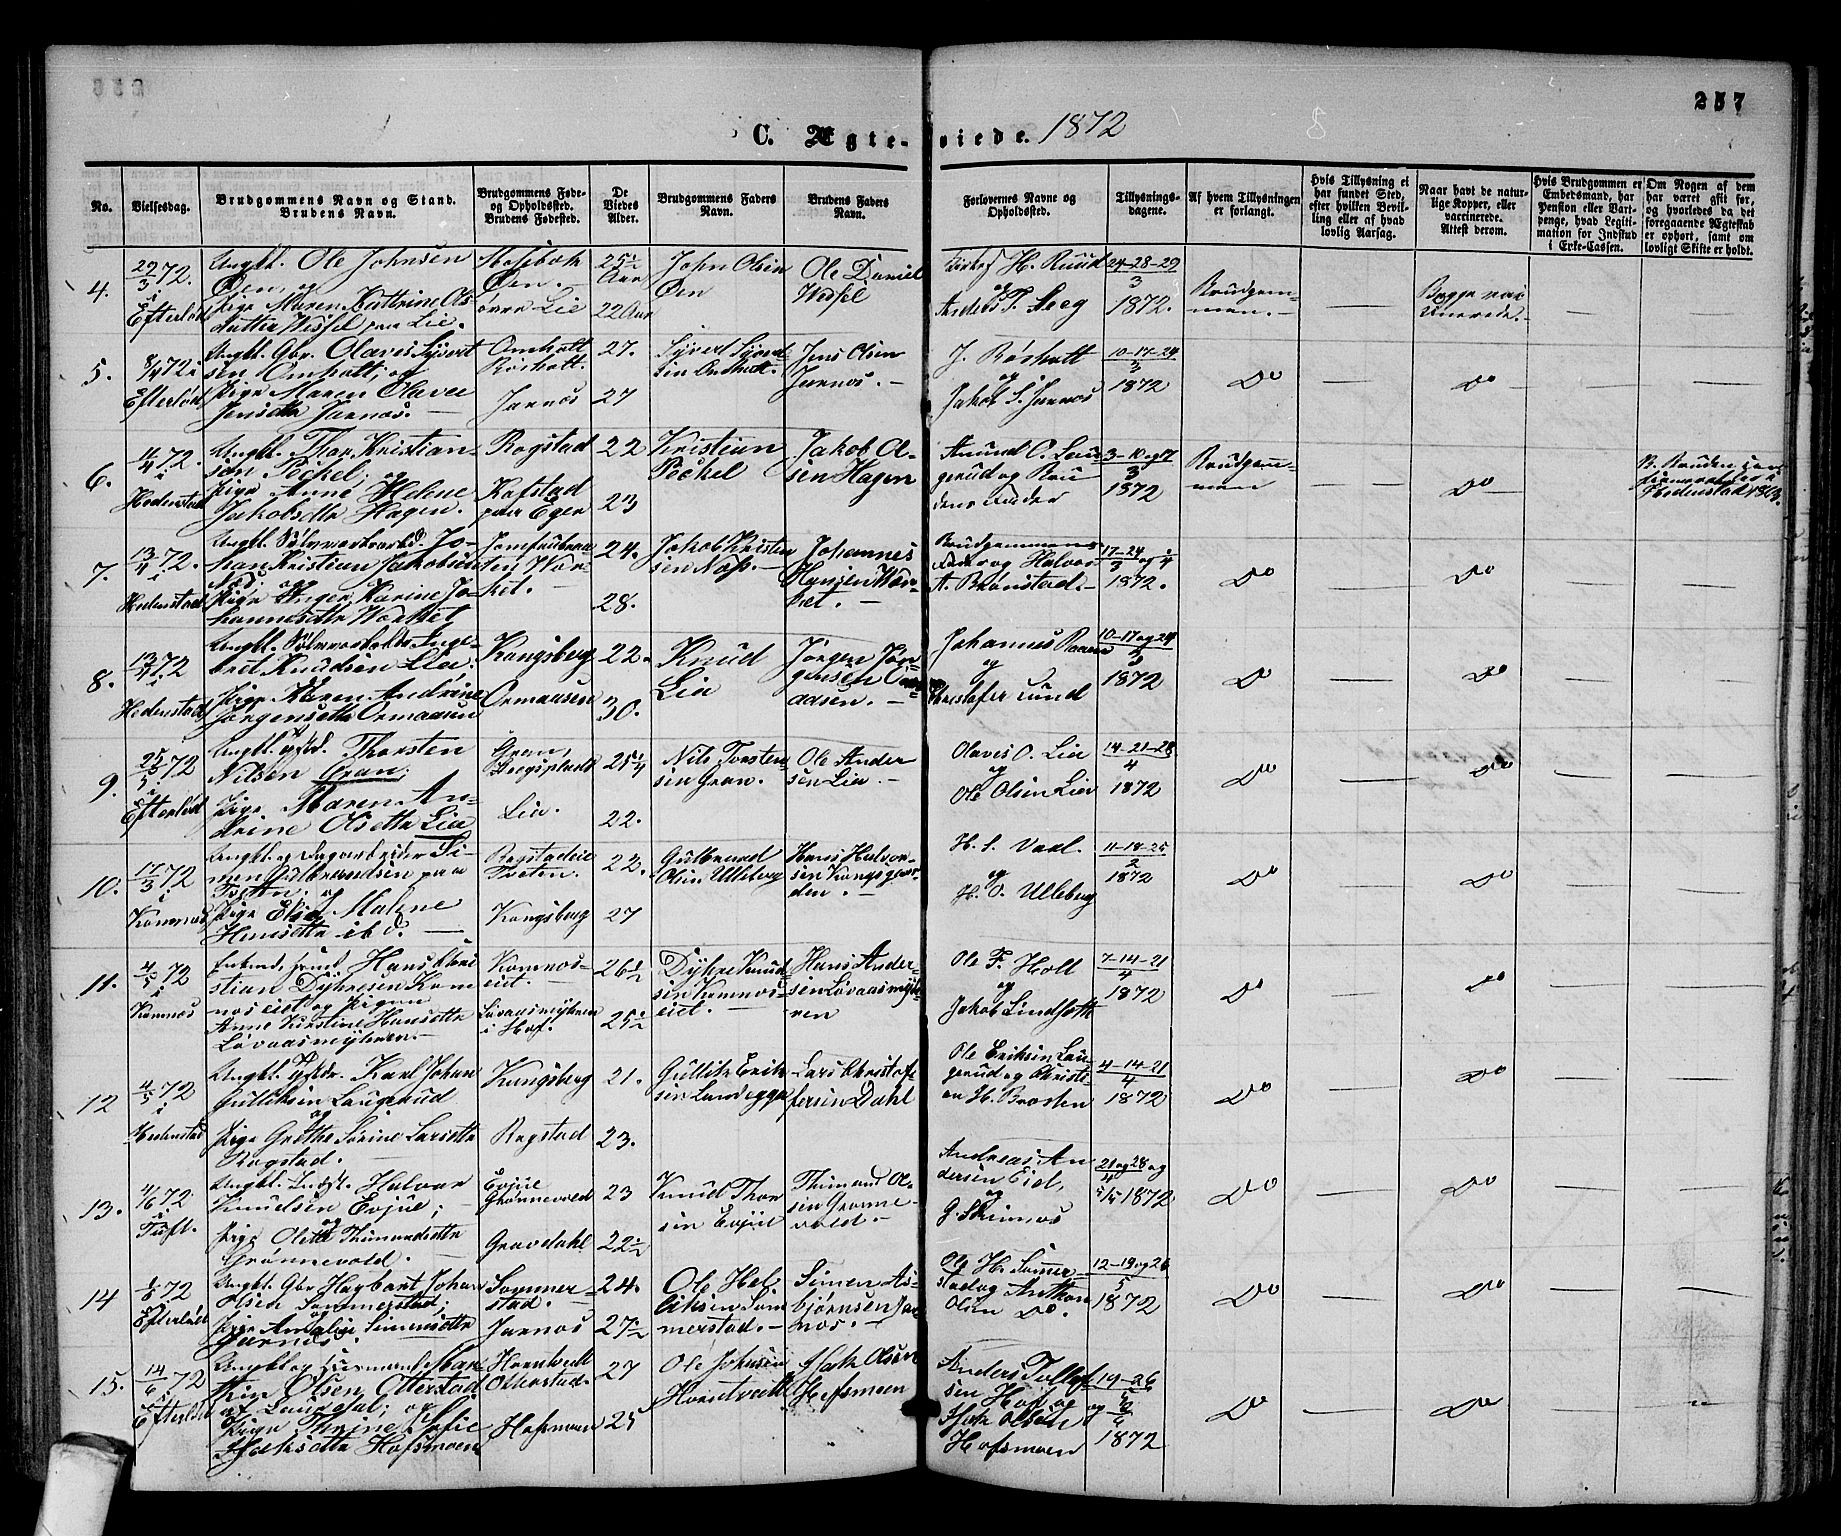 257
C. Ægte- viede. 1872
No.
Vielsesdag.
Brudgommens Navn og Stand.
Brudens Navn.
Brudgommens Føde-
og Opholdssted.
Brudens Fødested.
De
Viedes
Alder.
Brudgommens Faders
Navn.
Brudens Faders
Navn.
Forlovernes Navne og
Opholdssted.
Tillysnings-
dagene.
Af hvem Tillysningen
er forlangt.
Hvis Tillysning ei
har fundet Sted,
efter hvilken Bevil-
ling eller af hvad
lovlig Aarsag.
Naar havt de natur-
lige Kopper, eller
vaccinerede.
Attest derom.
Hvis Brudgommen er
Embedsmand, har
Pension eller Vart-
penge, hvad Legiti-
mation for Indskud
i Enke-Cassen.
Om Nogen af dem
har været gift før,
og hvorledes da det
foregaaende Ægteskab
er ophørt, samt om
lovligt Skifte er holdt.
4.
29/3 72.
i
Efterlød
Ungkl. Ole Johnsen
Øen, og
Pige Maren Kathrine Ols
datter Wessel paa Lie.
Øen.
øvre Lie
25½
Aar
22 Aar
John Olsen
Øen
Ole Daniel
Wessel
H. Ruud
og
Anders T. Berg
24-28-29
3
1872.
Brudgom-
men.
Begge vac
cinerede.
5.
8/4 72 i
Efterlød
Ungkl. Gbr. Olaves Syvert
sen Omholt; og
Pige Maren Olavee
Jensdtr Jarnæs.
Omholt
Røsholt.
Jarnæs
27.
27
Syvert Syvert-
sen Omholt.
Jens Olsen
Jarnæs.
J. Røsholt
og
Jakob S. Jarnæs
10-17-24
3
1872
Do
Do
6.
4/4 72.
i
Hedenstad
Ungkl. Thor Kristian-
sen Pøckel;
og
Pige Anne Helene
Jakobsdtr Hagen.
Rogstad
Kofstad
paa Eger
22
23
Kristian
Pøckel
Jakob Ol-
sen Hagen
Anund O. Lau
gerud og Bru
dens Fader
3-10 og 17
3
1872
Brudgom-
men
Do
B. Bruden con
firmeret i
Hedenstad 1863.
7.
13/4 72.
i
Hedenstad
Ungkl. Sølvværksarbd. Jo-
han Kristian Jakobsen
Næs; og
Pige Inger Karine Jo-
hannesdtr Wærket
24.
28.
Jakob Kristen
sen Næs.
Johannes
Hansen Wær-
ket.
Brudgommens
Fader og Halvor
A. Brønstad.
17-24 og 1
3 4
1872.
Do
Do
8.
13/4 72
i
Hedenstad
Ungkl. Inge-
bret Knudsen Lia.
og
Pige Karen Andrine
Jørgensdtr Ormaasen
Kongsberg
Ormaasen
22.
30.
Knud
Lia
Jørgen Jør-
gensen Orm-
aasen.
Johannes Raaen
og
Kristofer Lund
10-17 og 24
3
1872
Do
Do
9.
25/5 72
i
Efterlød
Ungkl. Thorsten
Nilsen Gran;
Pige Maren An-
drine Olsdtr Lia
Gran,
Bergsplads
Lia.
25¼
22.
Nils Torsten-
sen Gran.
Ole Ander
sen Lia.
Olaves O. Lia
og
Ole Olsen Lia
14-21-28
4
1872
Do
Do
10.
17/3 72
i
Komnæs
Ungkl. og Dagarbeider Si-
men Gulbrandsen paa
Tveten, og
Pige Elise Malene
Hansdtr ibd.
Rogstadeie
Tveten.
Kongsberg
22.
27
Gulbrand
Olsen Ulleberg
Hans Halvor-
sen Kongsgaar-
den.
H. S. Vaal.
og
H. O. Ulleberg
11-18-25
2
1872
Do
Do
11.
4/5 72
i
Komnæs
Hans Chri
stian Dyresen Kom
næseiet og Pigen
Anne Kirstine Hansdtr
Løvaasmyhren.
Komnæs-
eiet.
Løvaasmyhren
i Hof.
26½
25½
Dyhre Knud-
sen Komnæs-
eiet.
Hans Ander-
sen Løvaasmyh-
ren
Ole F. Holt
og
Jakob Lindseth
7-14-21
4
1872
Do
Do
12
4/5 72
i
Hedenstad
Ungkl. Karl Johan
Gulliksen Laugerud
og
Pige Grethe Sørine Larsdtr
Rogstad.
Kongsberg
Rogstad
21.
23.
Gullik Erik
sen Lundegge
Lars Christof-
fersen Dahl
Ole Eriksen Lau-
gerud og Christi-
an H. Braaten
4-14-21
4
1872
Do
Do
13.
4/6 72
i
Tuft.
Ungkl. Indst. Halvor
Knudsen Evjue;
og
Pige Olette Thimandsdtr
Grønnevold.
Evjue
Grønnevold
Gravdahl
23
22½
Knud Thor
sen Evjue
Thimand Ol-
sen Grønne-
vold.
Andreas An
dersen Eid,
og
G. Skimnæs
21 og 28 og
4
5/5 1872
Do
Do
14
1/6 72
Efterlød
Ungkl. Gbr Hagbart Johan
Olsen Sommerstad;
og
Pige Amalie Simensdtr
Jarnæs.
Sommer-
stad.
Jarnæs
24.
27½
Ole Hel-
liksen Som
merstad.
Simen As-
bjørnsen Jar-
næs.
Ole H. Sommer-
stad og Anthon
Olsen Do.
12-19 og 26
5
1872
Do
Do
15.
14/6 72
i
Efterlød
Ungkl og Huusmand Mar
thin Olsen Otterstad
af Laurdal; og
Pige Thrine Sofie
Isaksdtr Hofsmoen
Hvaatvedt
Otterstad.
Hofsmoen
27
25
Ole Johnsen
Hvaatvedt
Isak Olsen
Hofsmoen
Anders Tollef
sen Hof og
Isak Olsen
Hofsmoen
19-26
5
og 2/6
1872
Do
Do